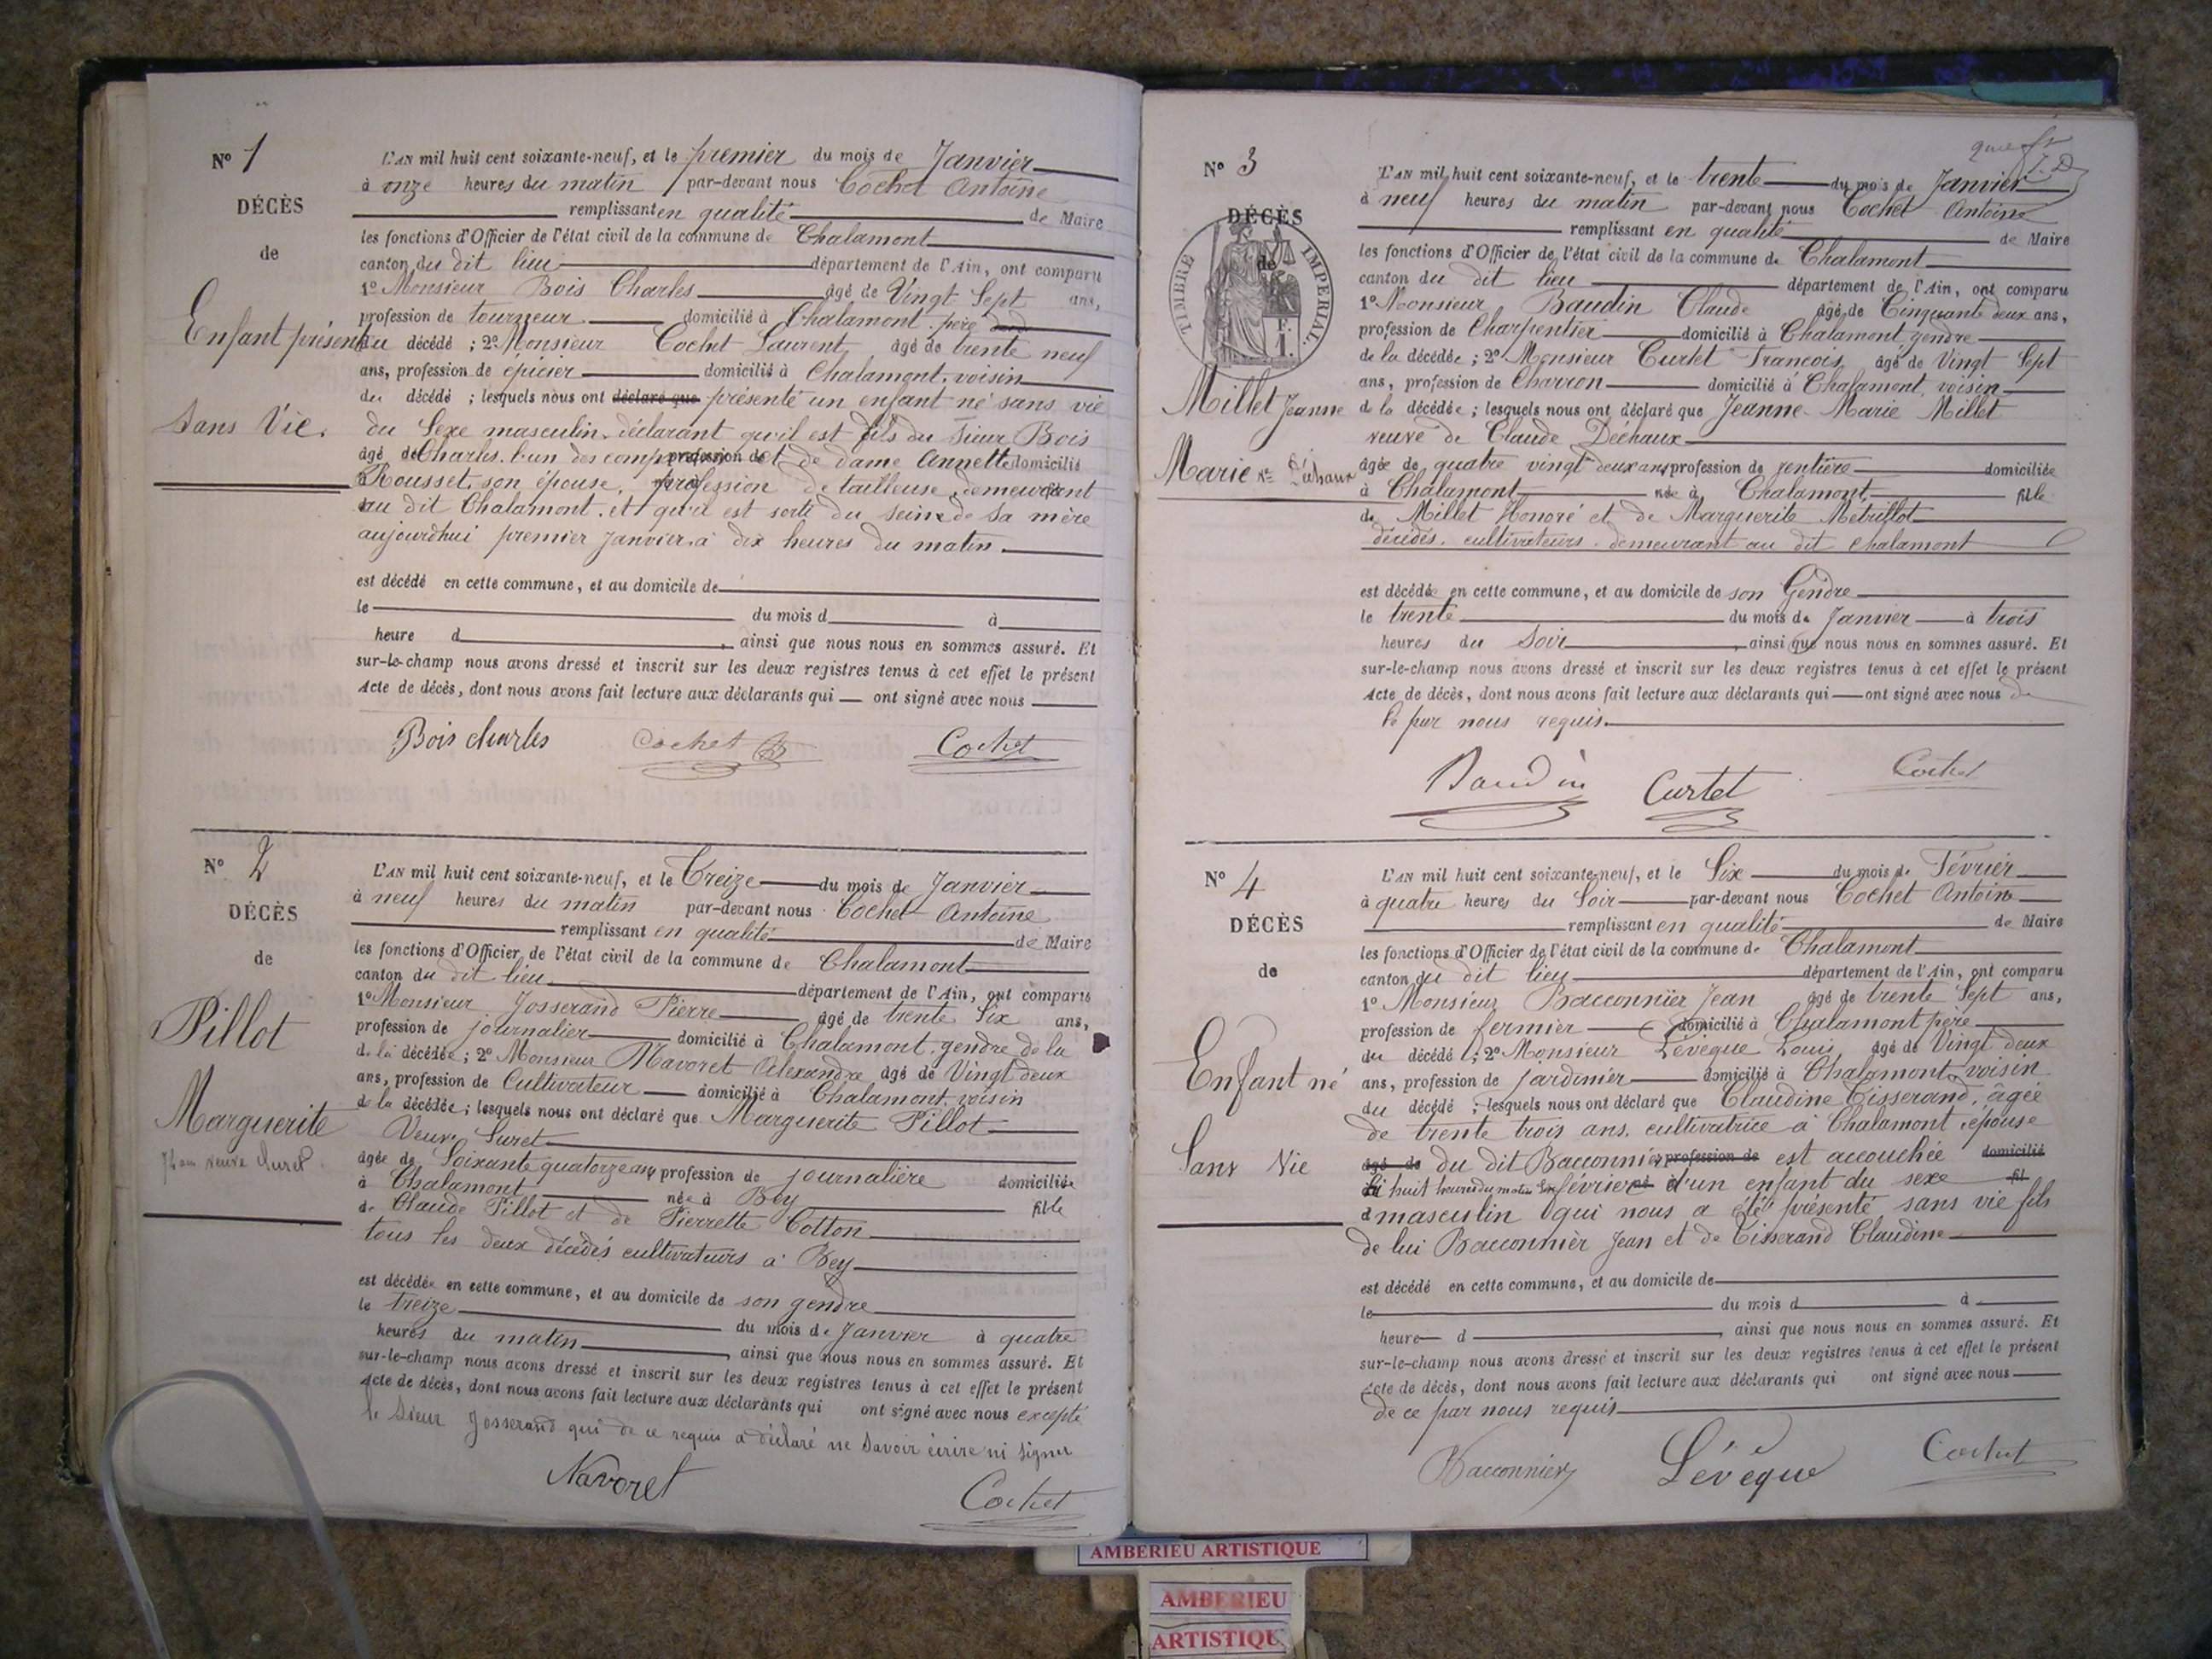 N° 1
DÉCÈS
de
Enfant présenté
Sans Vie.
L'AN mil huit cent soixante-neuf, et le premier du mois de Janvier
à onze heures du matin par-devant nous Cochet Antoine
remplissant en qualité de Maire
les fonctions d'Officier de l'état civil de la commune de Chalamont
canton du dit lieu département de l'Ain, ont comparu
1° Monsieur Bois Charles âgé de Vingt Sept ans,
profession de tourneur domicilié à Chalamont père
du décédé ; 2° Monsieur Cochet Laurent âgé de trente neuf
ans, profession de épicier domicilié à Chalamont, voisin
du décédé ; lesquels nous ont déclaré que présenté un enfant né sans vie
du Sexe masculin, déclarant qu'il est fils du Sieur Bois
âgé de Charles, l'un des comp profession de et de dame Annette domicilié
Rousset, son épouse, profession de tailleuse, demeurant
au dit Chalamont, et qu'il est sorti du sein de sa mère
aujourdhui premier Janvier à dix heures du matin.
est décédé en cette commune, et au domicile de
le du mois d à
heure d , ainsi que nous nous en sommes assuré. Et
sur-le-champ nous avons dressé et inscrit sur les deux registres tenus à cet effet le présent
Acte de décès, dont nous avons fait lecture aux déclarants qui ont signé avec nous
Bois charles Cochet Cochet
N° 2
DÉCÈS
de
Pillot
Marguerite
veuve Suret
L'AN mil huit cent soixante-neuf, et le Treize du mois de Janvier
à neuf heures du matin par-devant nous Cochet Antoine
remplissant en qualité de Maire
les fonctions d'Officier de l'état civil de la commune de Chalamont
canton du dit lieu département de l'Ain, ont comparu
1° Monsieur Josserand Pierre âgé de trente Six ans,
profession de journalier domicilié à Chalamont, gendre de la
de la décédée ; 2° Monsieur Navoret Alexandre âgé de Vingt deux
ans, profession de Cultivateur domicilié à Chalamont, voisin
de la décédée ; lesquels nous ont déclaré que Marguerite Pillot
Veuve Suret
âgée de Soixante quatorze ans profession de journalière domiciliée
à Chalamont née à Bey fille
de Claude Pillot et de Pierrette Cotton
tous les deux décédés cultivateurs à Bey
est décédée en cette commune, et au domicile de son gendre
le treize du mois de Janvier à quatre
heures du matin , ainsi que nous nous en sommes assuré. Et
sur-le-champ nous avons dressé et inscrit sur les deux registres tenus à cet effet le présent
Acte de décès, dont nous avons fait lecture aux déclarants qui ont signé avec nous excepté
le Sieur Josserand qui de ce requis a déclaré ne savoir écrire ni signer
Navoret Cochet
N° 3
DÉCÈS
de
TIMBRE IMPERIAL
F.
1.
Millet Jeanne
Marie Vve Déchaux
L'AN mil huit cent soixante-neuf, et le trente du mois de Janvier
à neuf heures du matin par-devant nous Cochet Antoine
remplissant en qualité de Maire
les fonctions d'Officier de l'état civil de la commune de Chalamont
canton du dit lieu département de l'Ain, ont comparu
1° Monsieur Baudin Claude âgé de Cinquante deux ans,
profession de Charpentier domicilié à Chalamont, gendre
de la décédée ; 2° Monsieur Curtet François, âgé de Vingt Sept
ans, profession de Charron domicilié à Chalamont, voisin
de la décédée ; lesquels nous ont déclaré que Jeanne-Marie Millet
veuve de Claude Déchaux
âgée de quatre vingt deux ans profession de rentière domiciliée
à Chalamont née à Chalamont fille
de Millet Honoré et de Marguerite Metrillot
décédés. cultivateurs. demeurant au dit Chalamont
est décédée en cette commune, et au domicile de son Gendre
le trente du mois de Janvier à trois
heures du Soir , ainsi que nous nous en sommes assuré. Et
sur-le-champ nous avons dressé et inscrit sur les deux registres tenus à cet effet le présent
Acte de décès, dont nous avons fait lecture aux déclarants qui ont signé avec nous de
ce par nous requis.
Baudin Curtet Cochet
N° 4
DÉCÈS
de
Enfant né
Sans Vie
L'AN mil huit cent soixante-neuf, et le Six du mois de Février
à quatre heures du Soir par-devant nous Cochet Antoine
remplissant en qualité de Maire
les fonctions d'Officier de l'état civil de la commune de Chalamont
canton du dit lieu département de l'Ain, ont comparu
1° Monsieur Bacconnier Jean âgé de trente Sept ans,
profession de fermier domicilié à Chalamont père
du décédé ; 2° Monsieur Lévêque Louis âgé de Vingt deux
ans, profession de Jardinier domicilié à Chalamont, voisin
du décédé ; lesquels nous ont déclaré que Claudine Tisserand, âgée
de trente trois ans, cultivatrice à Chalamont, épouse
âgé de du dit Bacconnier profession de est accouchée domicilié
huit heures du matin février né d'un enfant du sexe fil
masculin qui nous a été présenté sans vie fils
de lui Bacconnier Jean et de Tisserand Claudine
est décédé en cette commune, et au domicile de
le du mois d à
heure d , ainsi que nous nous en sommes assuré. Et
sur-le-champ nous avons dressé et inscrit sur les deux registres tenus à cet effet le présent
Acte de décès, dont nous avons fait lecture aux déclarants qui ont signé avec nous
de ce par nous requis
Bacconnier Lévêque Cochet
AMBERIEU ARTISTIQUE
AMBERIEU
ARTISTIQUE